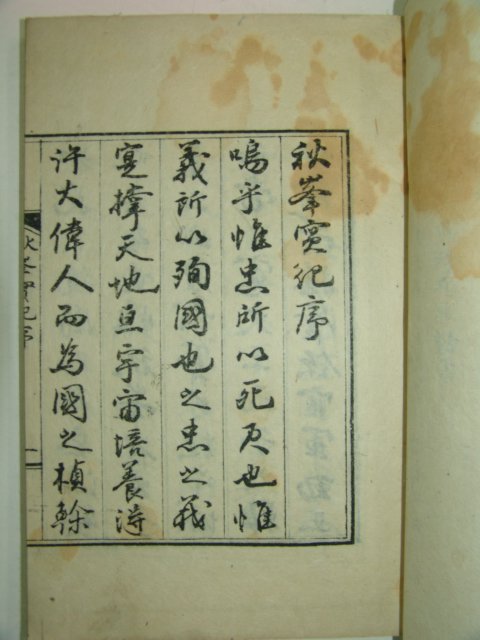 秋峯實紀序
嗚乎惟忠所以死君也惟
義所以殉國也之忠之義
寔撑天地亘宇宙培養得
許大偉人而爲國之楨榦
秋峯實紀序